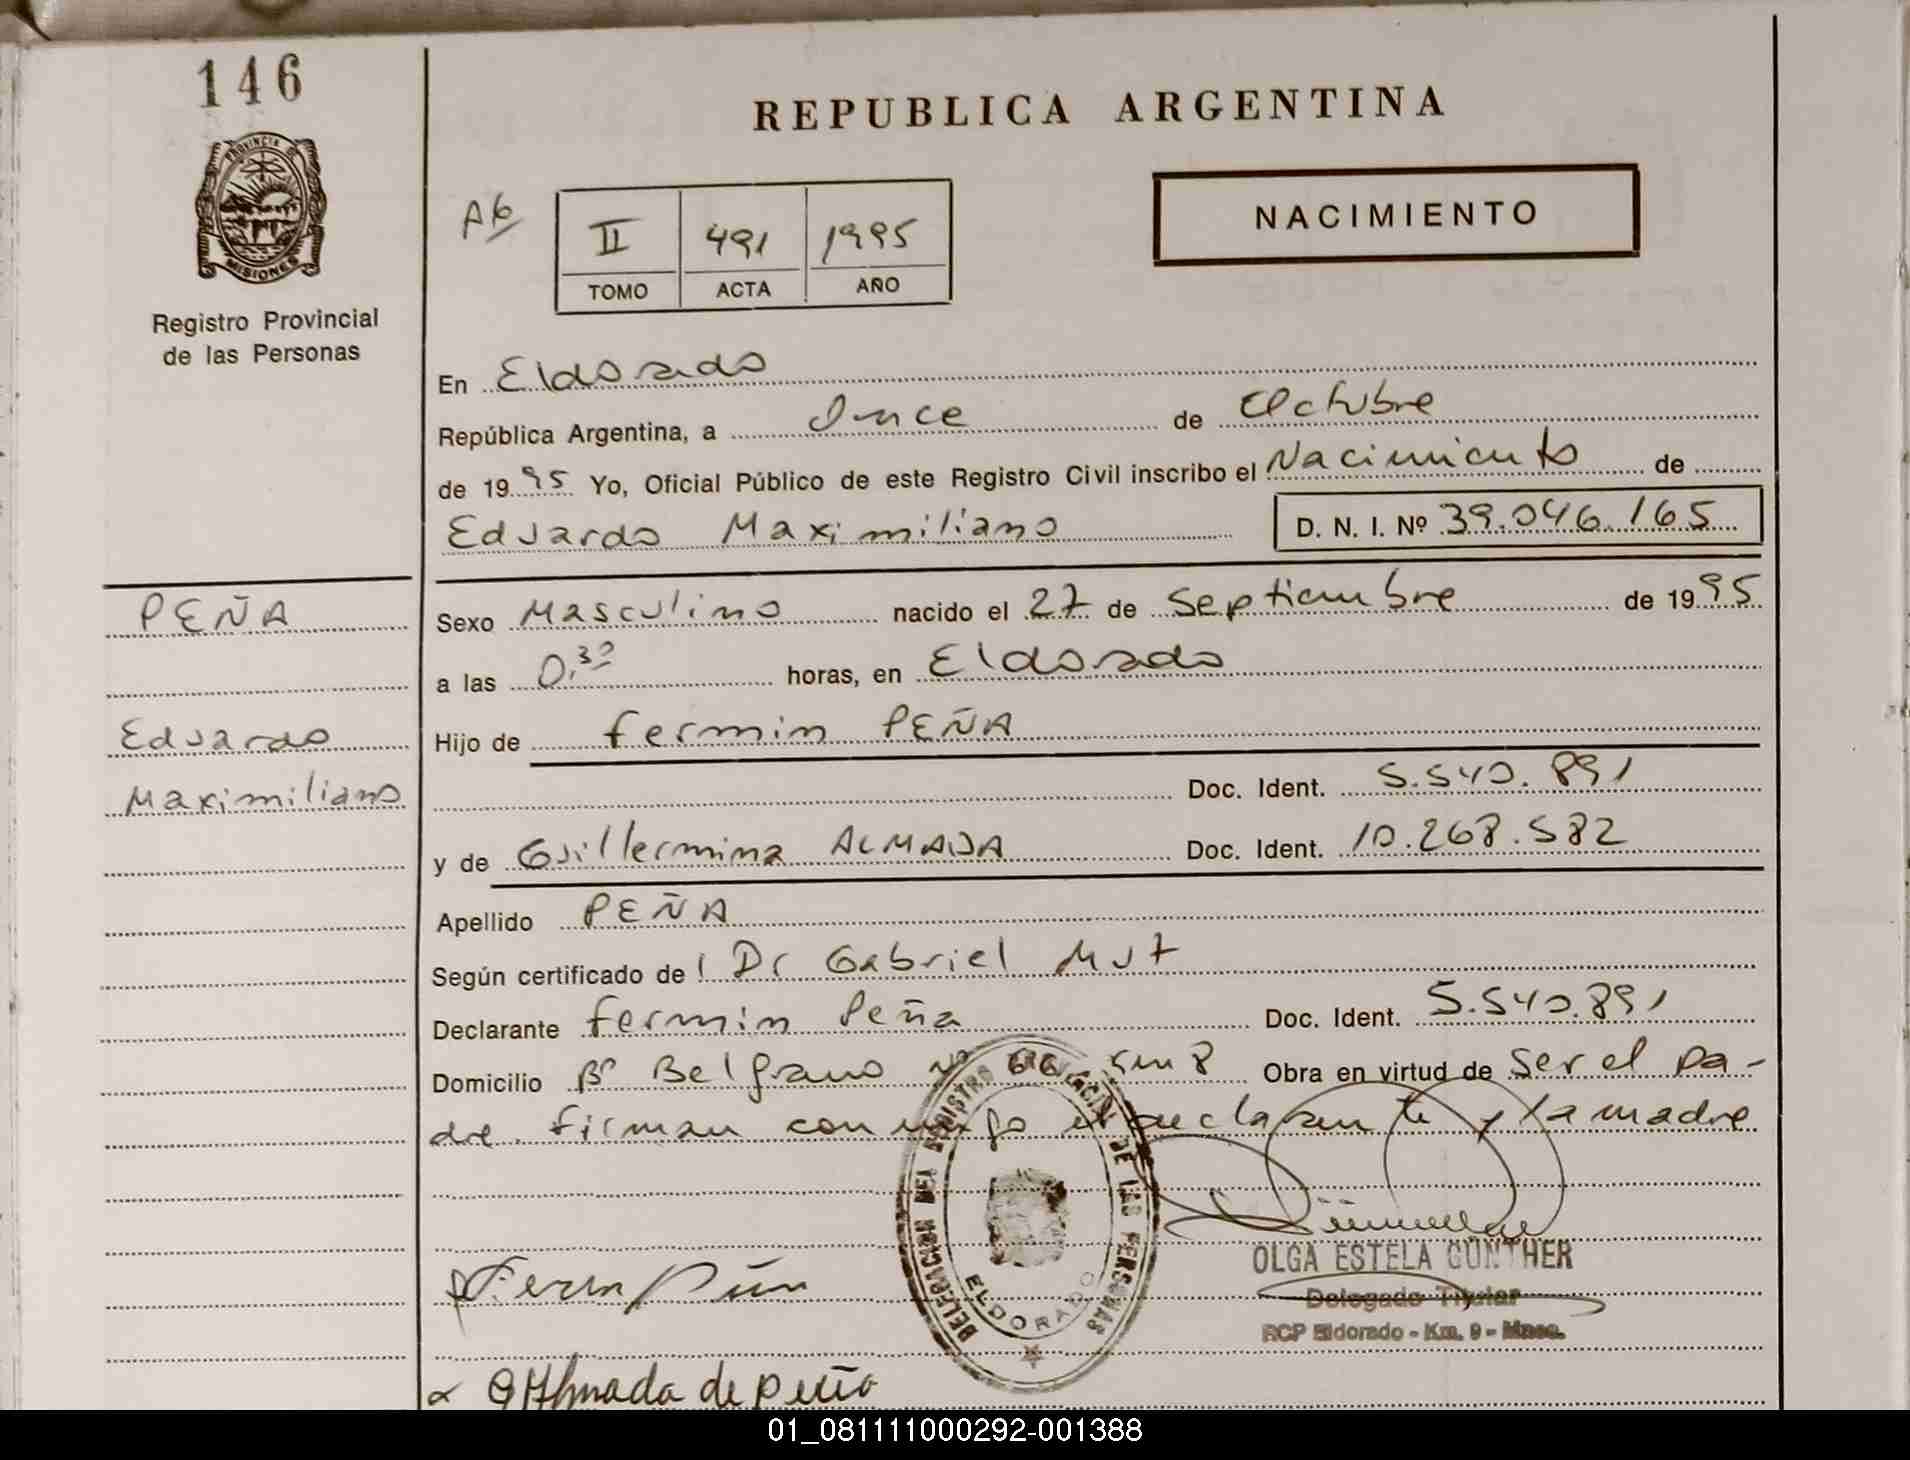 146
REPUBLICA ARGENTINA
PROVINCIA DE
MISIONES
Registro Provincial
de las Personas
A6
II 491 1995
TOMO ACTA AÑO
NACIMIENTO
En Eldorado
República Argentina, a Once de Octubre
de 1995 Yo, Oficial Público de este Registro Civil inscribo el Nacimiento de
Eduardo Maximiliano D. N. I. Nº 39.046.165
PEÑA
Eduardo
Maximiliano
Sexo Masculino nacido el 27 de Septiembre de 1995
a las 0,30 horas, en Eldorado
Hijo de Fermin PEÑA
Doc. Ident. 5.540.891
y de Guillermina ALMADA Doc. Ident. 10.268.582
Apellido PEÑA
Según certificado de l Dr Gabriel
Declarante Fermin Peña Doc. Ident. 5.540.891
Domicilio Bº Belgrano Nº 66 Km 8 Obra en virtud de ser el pa-
dre. Firman conmigo el declarante y la madre
DELEGACION DEL REGISTRO PROVINCIAL DE LAS PERSONAS
ELDORADO
OLGA ESTELA GÜNTHER
Delegado Titular
RCP Eldorado - Km. 9 - Mnes.
G Almada de Peña
01_081111000292-001388